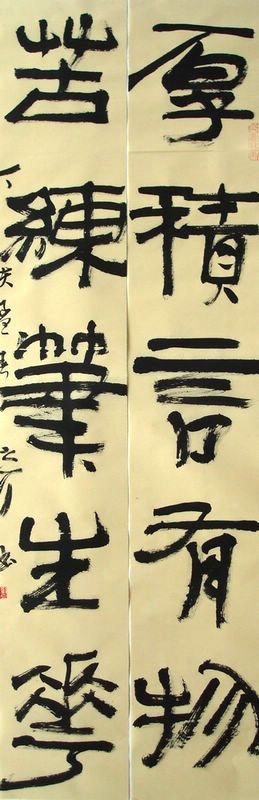 厚積言有物
苦練筆生花